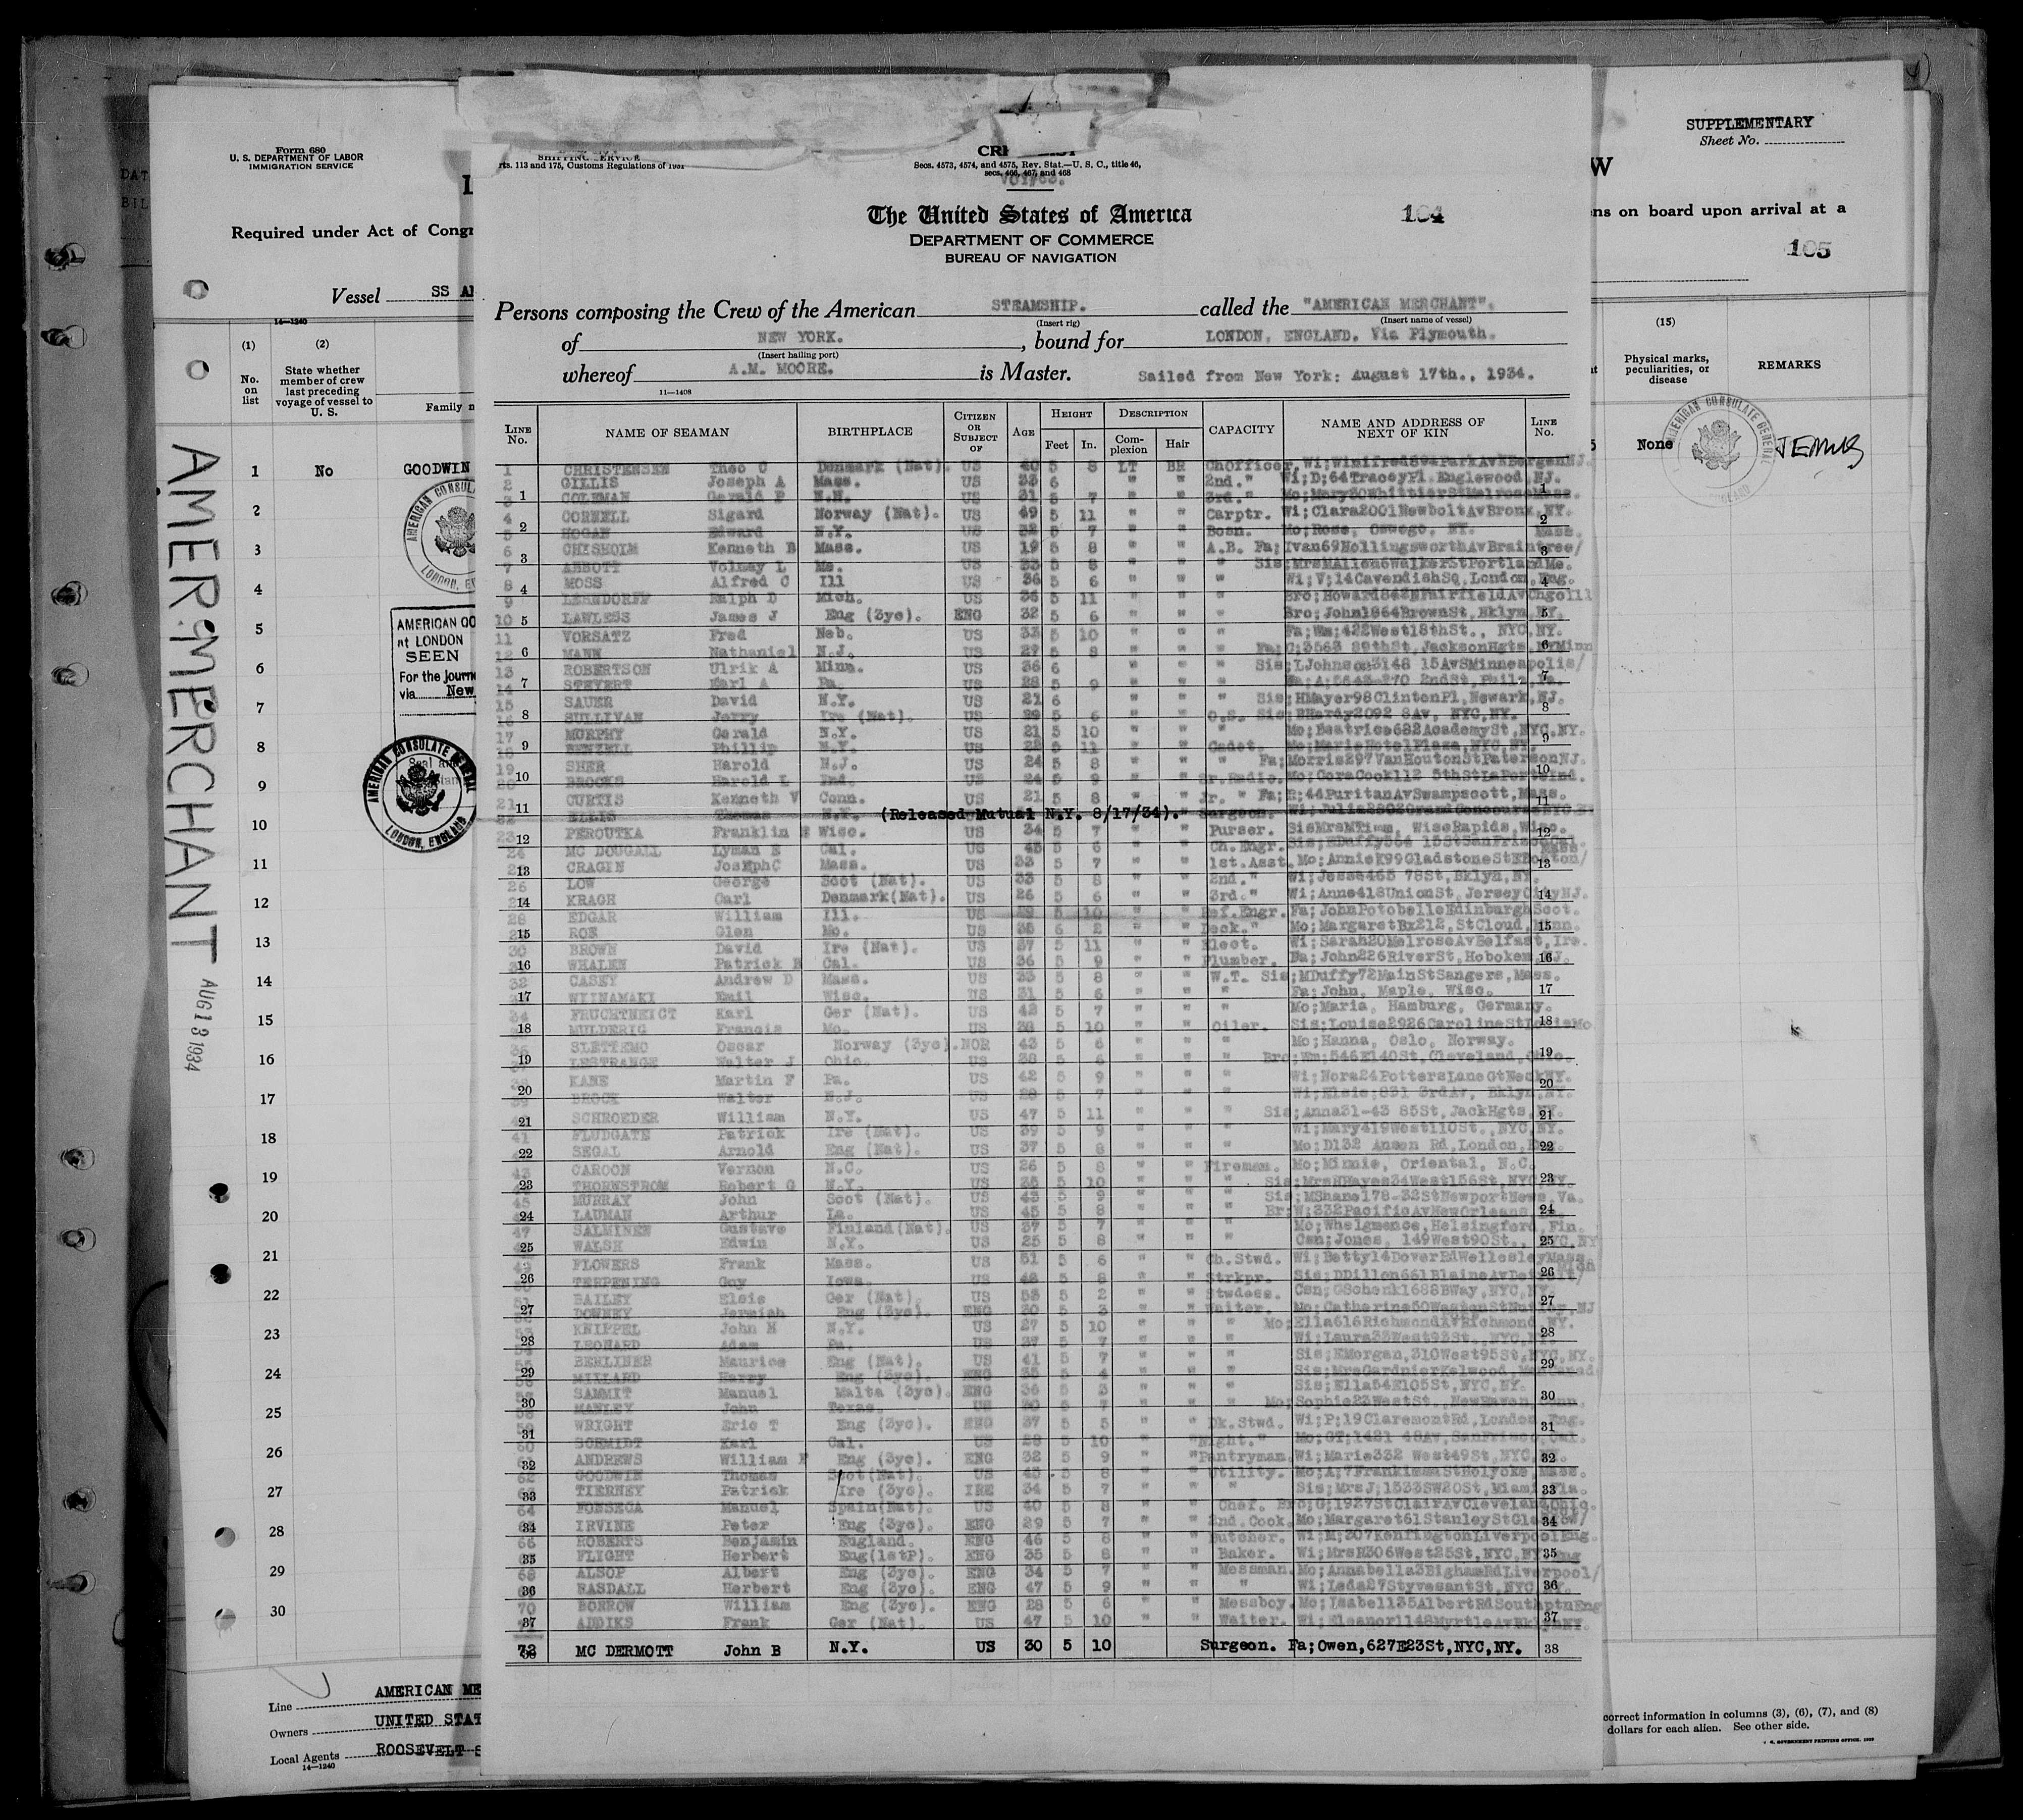 Form 680
U. S. DEPARTMENT OF LABOR
IMMIGRATION SERVICE
Required under Act of Congr
Vessel SS A
14—1240
(1) (2)
No. on list
State whether member of crew last preceding voyage of vessel to U. S.
Family n
1 No GOODWIN
2
3
4
5
6
7
8
9
10
11
12
13
14
15
16
17
18
19
20
21
22
23
24
25
26
27
28
29
30
AMERICAN CONSUL
LONDON, E
AMERICAN CO
at LONDON
SEEN
For the journe
via New
AMERICAN CONSULATE GENERAL
LONDON, ENGLAND
AMERICAN MERCHANT AUG 18 1934
Line AMERICAN ME
Owners UNITED STAT
Local Agents ROOSEVELT S
14—1240
SHIPPING SERVICE
rts. 113 and 175, Customs Regulations of 1931
Secs. 4573, 4574, and 4575, Rev. Stat.—U. S. C., title 46,
secs. 466, 467, and 468
The United States of America 104
DEPARTMENT OF COMMERCE
BUREAU OF NAVIGATION
Persons composing the Crew of the American STEAMSHIP. called the "AMERICAN MERCHANT".
(Insert rig) (Insert name of vessel)
of NEW YORK. , bound for LONDON, ENGLAND. Via Plymouth.
(Insert hailing port)
whereof A.M. MOORE. is Master. Sailed from New York: August 17th., 1934.
11—1408
LINE No. NAME OF SEAMAN BIRTHPLACE CITIZEN OR SUBJECT OF AGE HEIGHT Feet In. DESCRIPTION Complexion Hair CAPACITY NAME AND ADDRESS OF NEXT OF KIN LINE No.
1 CHRISTENSEN Theo C Denmark (Nat). US 40 5 8 LT BR Chofficer.
2 GILLIS Joseph A Mass. US 33 6 " " 2nd. " Wi; D; 64 TraceyPl Englewood, NJ.
3 COLEMAN Gerald P N.H. US 31 5 7 " " 3rd. "
4 CORNELL Sigard Norway (Nat). US 49 5 11 " " Carptr. Wi; Clara2001NewboltAvBronx, NY.
5 HOGAN Edward N.Y. US 32 5 7 " " Bosn. Mo; Rose, Oswego, NY.
6 CHISHOLM Kenneth B Mass. US 19 5 8 " " A.B. Fa; Ivan69HollingsworthAvBraintree/ Mass.
7 ABBOTT Volney L Me. US 33 5 8 " " "
8 MOSS Alfred C Ill US 36 5 6 " " " Wi; V; 14CavendishSq, London, Eng.
9 Ralph D Mich. US 35 5 11 " " "
10 LAWLESS James J Eng (3yc). ENG 32 5 6 " " " Bro; John1964BrownSt, Bklyn, NY.
11 VORSATZ Fred Neb. US 33 5 10 " " " Fa; Wm; 422West18thSt., NYC, NY.
12 MANN Nathaniel N.J. US 29 5 8 " " "
13 ROBERTSON Ulrik A Minn. US 36 6 " " " Sis; LJohnson3148 15AvSMinneapolis/ Minn
14 STEYERT Earl A Pa. US 28 5 9 " " "
15 SAUER David N.Y. US 21 6 " " " Sis; HMayer98ClintonPl, Newark, NJ.
16 SULLIVAN Jerry Ire (Nat). US 29 5 6 " " O.S. Sis; BHardy2092 8Av, NYC, NY.
17 MURPHY Gerald N.Y. US 21 5 10 " " " Mo; Beatrice682AcademySt, NYC, NY.
18 Phillip N.Y. US 22 5 11 " " Cadet. Mo; MarieHotelPlaza, NYC, NY.
19 SHER Harold N.J. US 24 5 8 " " " Fa; Morris297VanHoutonStPatersonNJ.
20 BROOKS Harold L Ind. US 24 5 9 " " Sr.Radio. Mo; CoraCook112 5thStLaPorteInd.
21 CURTIS Kenneth V Conn. US 21 5 8 " " Jr. " Fa; R; 44PuritanAvSwampscott, Mass.
22 Thomas N.Y. (Released Mutual N.Y. 8/17/34). " Surgeon.
23 PEROUTKA Franklin Wisc. US 34 5 7 " " Purser. SisMrsMTimm, WiscRapids, Wisc.
24 MC DOUGALL Lyman E Cal. US 45 5 6 " " Ch.Engr.
25 CRAGIN JosephC Mass. US 33 5 7 " " 1st.Asst. Mo; AnnieK99GladstoneStEBoston/ Mass
26 LOW George Scot (Nat). US 33 5 8 " " 2nd. " Wi; Jesse465 78St, Bklyn, NY.
27 KRAGH Carl Denmark(Nat). US 26 5 6 " " 3rd. " Wi; Anne418UnionSt, JerseyCityNJ.
28 EDGAR William Ill. US 29 5 10 " " Ref.Engr. Fa; JohnPotobelloEdinburghScot.
29 ROE Glen Mo. US 35 6 2 " " Deck. " Mo; MargaretBx212, StCloud, Minn.
30 BROWN David Ire (Nat). US 37 5 11 " " Elect. Wi; Sarah20MelroseAvBelfast, Ire.
31 WHALEN Patrick Cal. US 36 5 9 " " Plumber. Fa; John226RiverSt, Hoboken, NJ.
32 CASEY Andrew D Mass. US 33 5 8 " " W.T. Sis; MDuffy72MainStSangers, Mass.
33 WIINAMAKI Emil Wisc. US 31 5 6 " " " Fa; John, Maple, Wisc.
34 FRUCHTNEICT Karl Ger (Nat). US 42 5 7 " " " Mo; Maria, Hamburg, Germany.
35 MULDERIG Francis Mo. US 38 5 10 " " Oiler. Sis; Louise2926CarolineStLouisMo
36 SLETTEMO Oscar Norway (3yc). NOR 43 5 6 " " " Mo; Hanna, Oslo, Norway.
37 LESTRANGE Walter J Ohio. US 38 5 6 " " " Bro; Wm; 546E140St, Cleveland, Ohio.
38 KANE Martin F Pa. US 42 5 9 " " " Wi; Nora24PottersLaneGtNeckNY.
39 BROCK Walter N.J. US 28 5 7 " " " Wi; Elsie; 831 3rdAv, Bklyn, NY.
40 SCHROEDER William N.Y. US 47 5 11 " " " Sis; Anna31-43 85St, JackHgts, NY.
41 FLUDGATE Patrick Ire (Nat). US 39 5 9 " " " Wi; Mary419West110St., NYC, NY.
42 SEGAL Arnold Eng (Nat). US 37 5 8 " " " Mo; D132 Ansen Rd, London, Eng.
43 CAROON Vernon N.C. US 26 5 8 " " Fireman. Mo; Minnie, Oriental, N.C.
44 THORNSTROM Robert G N.Y. US 35 5 10 " " " Sis; MrsHHayes34West156St, NYC, NY.
45 MURRAY John Scot (Nat). US 43 5 9 " " " Sis; MShane178-32StNewportNews, Va.
46 LAUMAN Arthur La. US 45 5 8 " " " Br; W; 332PacificAvNewOrleans
47 SALMINEN Gustave Finland(Nat). US 37 5 7 " " " Mo; Whelgmence, Helsingford, Fin.
48 WALSH Edwin N.Y. US 25 5 8 " " " Csn; Jones, 149West90St., NYC, NY
49 FLOWERS Frank Mass. US 51 5 6 " " Ch.Stwd. Wi; Betty14DoverRdWellesleyMass.
50 TERPENING Guy Iowa. US 48 5 8 " " Strkpr. Sis; DDillon661BlaineAvDetroit/ Mich
51 BAILEY Elsie Ger (Nat). US 53 5 2 " " Stwdess. Csn; GSchenk1688BWay, NYC, NY.
52 DOWNEY Jermiah Eng (3yc). ENG 30 5 3 " " Waiter.
53 KNIPPEL John H N.Y. US 27 5 10 " " " Mo; Ella616RichmondAvRichmond, NY.
54 LEONARD Adam Pa. US 37 5 7 " " " Wi; Laura33West92St., NYC, NY.
55 BERLINER Maurice Eng (Nat). US 41 5 7 " " " Sis; EMorgan, 310West95St, NYC, NY.
56 MILLARD Harry Eng (3yc). ENG 35 5 4 " " "
57 SAMMIT Manuel Malta (3yc). ENG 36 5 3 " " " Sis; Ella54E105St, NYC, NY.
58 MANLEY John Texas. US 30 5 7 " " " Mo; Sophie23WestSt., NewHaven, Conn.
59 WRIGHT Eric T Eng (3yc). ENG 37 5 5 " " Dk.Stwd. Wi; P; 19ClaremontRd, London, Eng.
60 SCHMIDT Karl Cal. US 28 5 10 " "Night." Mo; GT; 1421 48Av, SanFrisco, Cal.
61 ANDREWS William F Eng (3yc). ENG 32 5 9 " "Pantryman. Wi; Marie332 West49St, NYC, NY.
62 GOODWIN Thomas Scot(Nat). US 45 5 8 " " Utility.
63 TIERNEY Patrick Ire (3yc). IRE 34 5 7 " " " Sis; MrsJ; 1533SW20St, Miami, Fla.
64 FONSECA Manuel Spain(Nat). US 40 5 8 " " Chef. Bro; G; 1927StClairAvCleveland, Ohio.
65 IRVINE Peter Eng (3yc). ENG 29 5 7 " " 2nd.Cook. Mo; Margaret61StanleyStGlasgow/
66 ROBERTS Benjamin England. ENG 46 5 8 " " Butcher. Wi; M; 307KensingtonLiverpoolEng.
67 FLIGHT Herbert Eng(1stP). ENG 35 5 8 " " Baker. Wi; MrsH306West25St, NYC, NY
68 ALSOP Albert Eng (3yc). ENG 34 5 7 " " Messman. Mo; Annabella3BighamRdLiverpool/ Eng
69 RASDALL Herbert Eng (3yc). ENG 47 5 9 " " " Wi; Leda27StyvesantSt, NYC, NY.
70 BORROW William Eng (3yc). ENG 28 5 6 " " Messboy. Mo; Isabell35AlbertRdSouthptnEng
71 ADDIKS Frank Ger (Nat). US 47 5 10 " " Waiter. Wi; Eleanor1148MyrtleAvBklynNY.
72 MC DERMOTT John B N.Y. US 30 5 10 Surgeon. Fa; Owen, 627E23St, NYC, NY. 38
SUPPLEMENTARY
Sheet No.
W
ns on board upon arrival at a
105
(15)
Physical marks, peculiarities, or disease
REMARKS
None
AMERICAN CONSULATE GENERAL
correct information in columns (3), (6), (7), and (8)
dollars for each alien. See other side.
U. S. GOVERNMENT PRINTING OFFICE